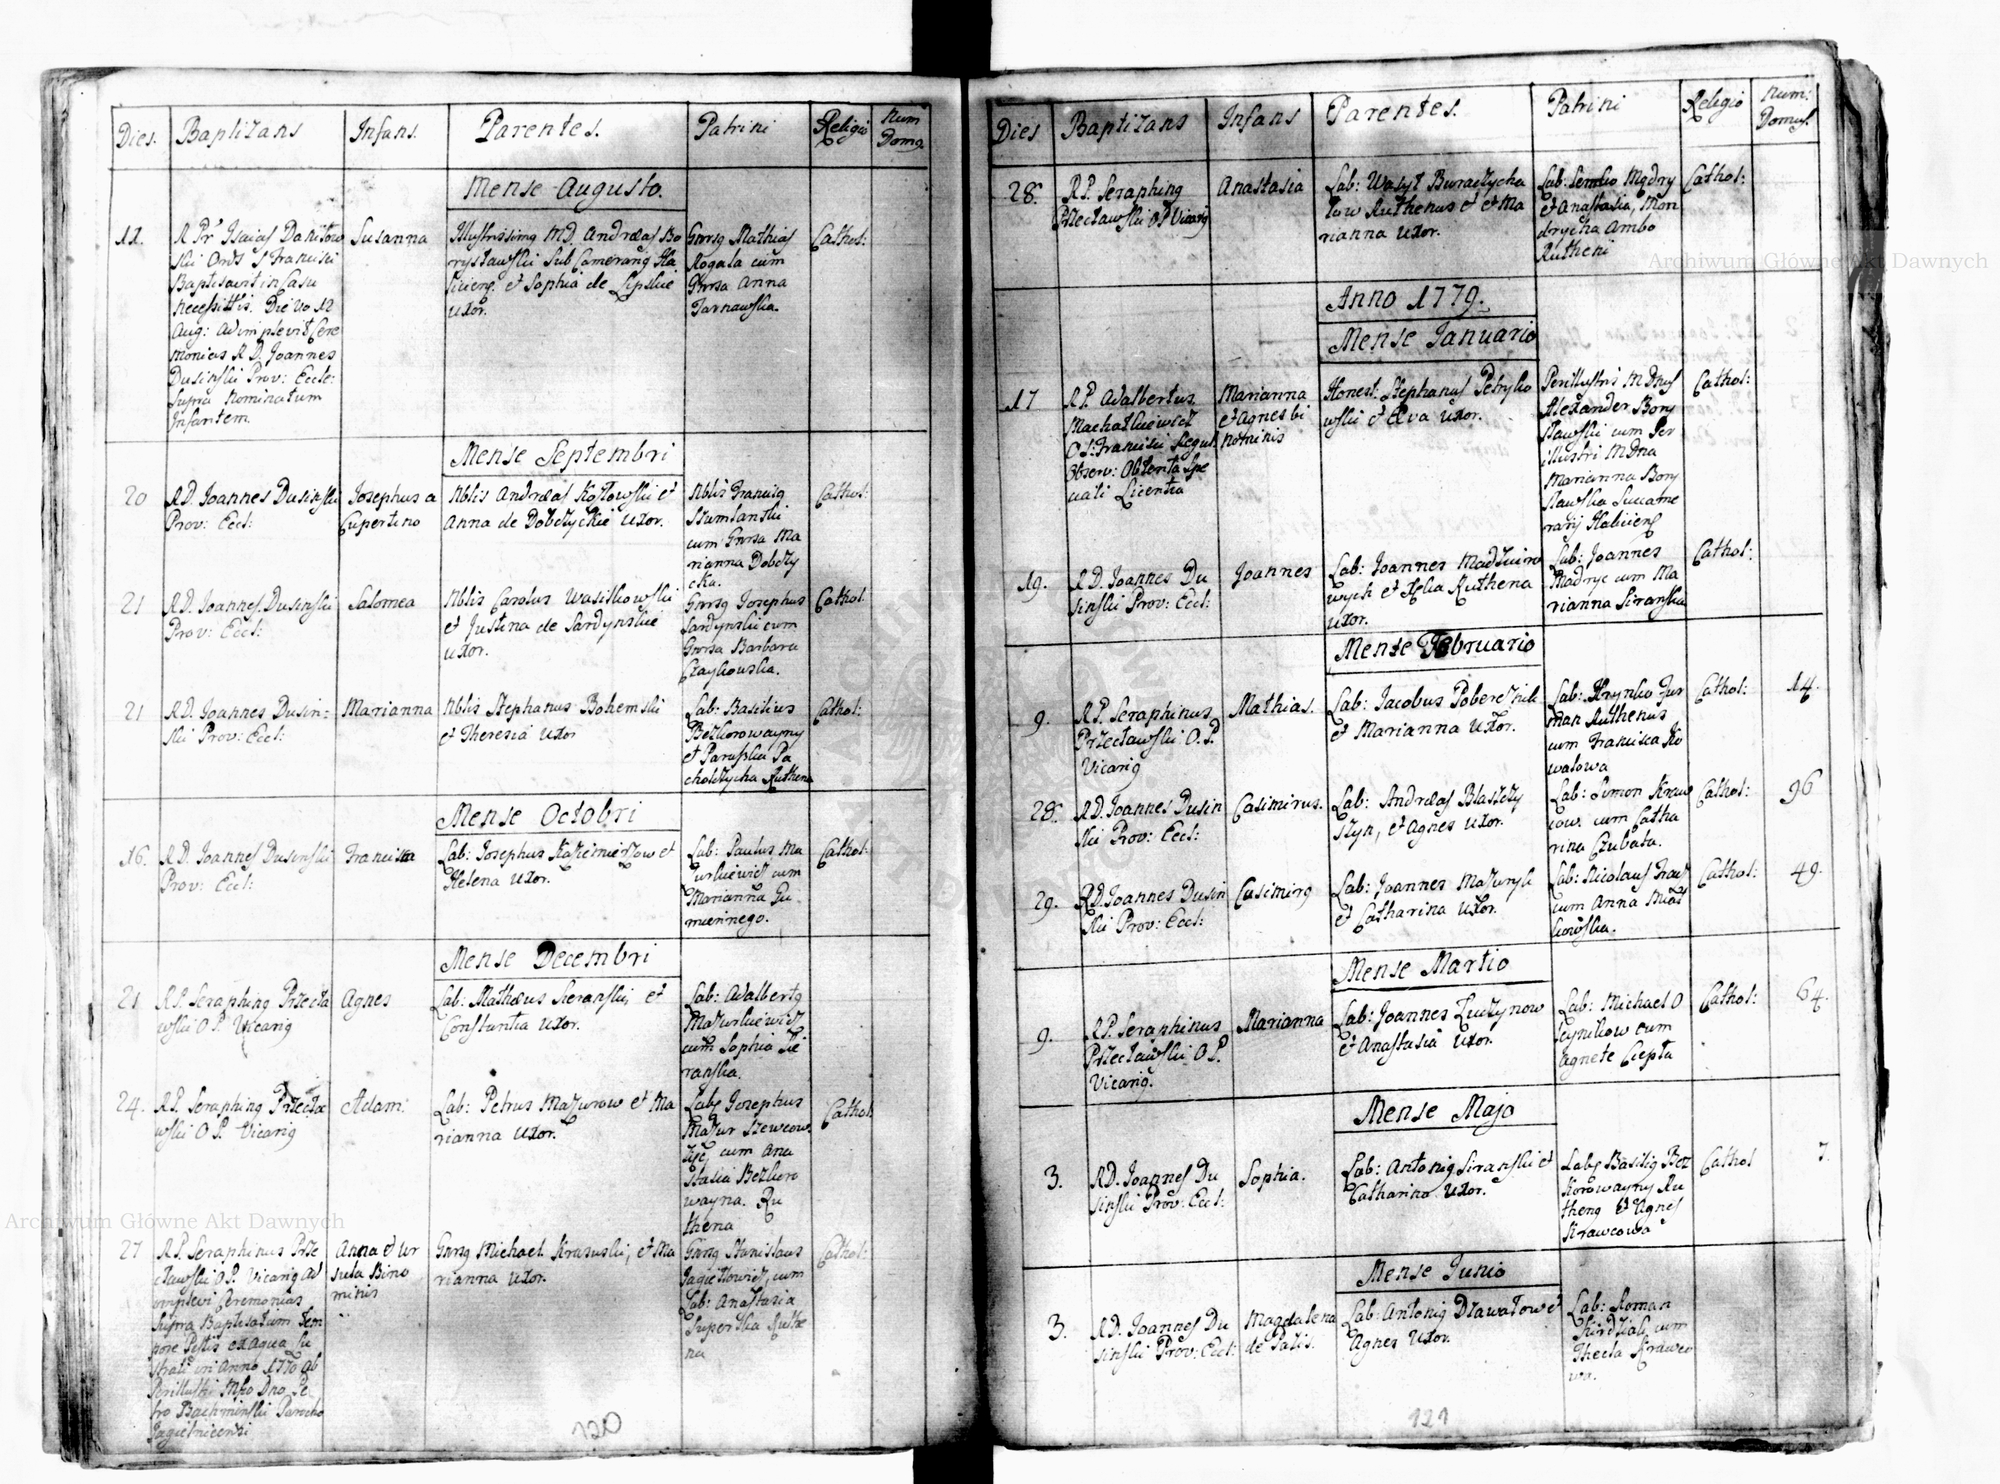 Dies.
Baptizans
Infans.
Parentes.
Patrini
Religio
Num
Domq.
Mense Augusto.
11.
R Pr Isaias
Ords S Francisci
Baptisavit in Casu
necessittis. Die vo 12
Aug: adimplevit Cere
monias R D. Joannes
Dusinski Prov: Eccle:
supra nominatum
Infantem.
Susanna
Illustrissimq MD. Andræas Bo
rysławski Sub Camerarq Ha
licienq. et Sophia de Lipskie
uxor.
Gnrsq Mathias
Rogala cum
Gnrsa Anna
Tarnawska.
Cathol:
Mense Septembri
20
RD. Joannes Dusinski
Prov: Eccl:
Josephus a
Cupertino
Nblis Andræas Kozłowski et
Anna de Dobczyckie uxor.
Nblis Franciscq
Szumlanski
cum Gnrsa Ma
rianna Dobczy
cka.
Cathol:
21
RD. Joannes Dusinski
Prov: Eccl:
Salomea
Nblis Carolus Wasilkowski
et Justina de Sardynskie
uxor.
Gnrsq Josephus
Sardynski cum
Gnrsa Barbara
Czaykowska.
Cathol:
21
RD. Joannes Dusin-
ski Prov: Eccl:
Marianna
Nblis Stephanus Bohemski
et Theresia uxor
Lab: Basilius
Bezkorowayny
et Paraska Pa
chołczycha Ruthena
Cathol:
Mense Octobri
16.
RD. Joannes Dusinski
Prov: Eccl:
Francisca
Lab: Josephus Kazimierzow et
Helena uxor.
Lab: Paulus Ma
zurkiewicz cum
Marianna Gu
miennego.
Cathol:
Mense Decembri
21
RP. Seraphinq Przecła
wski OP. Vicariq
Agnes
Lab: Mathæus Sieranski et
Constantia uxor.
Lab: Adalbertq
Mazurkiewicz
cum Sophia Sie
ranska.
24.
RP. Seraphinq Przecła
wski OP. Vicariq
Adam:
Lab: Petrus Mazurow et Ma
rianna uxor.
Labs Josephus
Mazur Szewcow
cum Ana
stasia Bezkoro
wayna. Ru
thena
Cathol:
27
RP. Seraphinus Prze
cławski OP. Vicariq ad
implevi Ceremonias
supra Baptisatum tem
pore Pestis ex aqua
in Anno 1770 ab
Perillustri
Bachminski Parocho
Jagielnicensi
Anna et ur
sula Bino
minis
Gnrsq Michael Krasuski, et Ma
rianna uxor.
Gnrsq Stanislaus
Jagiełłowicz, cum
Lab: Anastasia
Ruthe
na
Cathol:
120
Dies
Baptizans
Infans
Parentes.
Patrini
Religio
Num:
Domus.
28.
RP. Seraphinq
Przecławski OP Vicariq
Anastasia
Lab: Wasyl Buraczycha
tow Ruthenus et et Ma
rianna uxor.
Lab: Semko Mądry
et Anastasia, Mon
drycha Ambo
Rutheni
Cathol:
Anno 1779.
Mense Ianuario
17
RP. Adalbertus
Machalkiewicz
OS: Francisci Regul:
Observ: Obtenta Spe
ciali Licentia
Marianna
et Agnes bi
nominis
Honest: Stephanus Petryko
wski et Eva uxor.
Perillustris MDnus
Alexander Bory
sławski cum Per
illustri MDna
Marianna Bory
sławska Succame
rarij Haliciens
Cathol:
19.
RD. Joannes Du
sinski Prov: Eccl:
Joannes
Lab: Joannes Madziuro
wych et Helia Ruthena
uxor.
Lab: Joannes
Madryc cum Ma
rianna Siranska
Cathol:
Mense Februario
9.
RP. Seraphinus
Przecławski O.P.
Vicariq
Mathias.
Lab: Jacobus Pobereznik
et Marianna uxor.
Lab: Hrynko Fur
man Ruthenus
cum Francisca Ko
walowa
Cathol:
14.
28.
RD. Joannes Dusin
ski Prov: Eccl:
Casimirus.
Lab: Andræas Blaszczy
szyn, et Agnes uxor.
Lab: Simon Kraw
cow. cum Catha
rina Czubata.
Cathol:
96
29.
RD. Joannes Dusin
ski Prov: Eccl:
Casimirq
Lab: Joannes Mazuryk
et Catharina uxor.
Lab: Nicolaus
cum Anna
kowska.
Cathol:
49.
Mense Martio
9.
RP. Seraphinus
Przecławski O.P.
Vicariq.
Marianna
Lab: Joannes Łuczynow
et Anastasia uxor.
Lab: Michael O
leynikow cum
Agnete Ciepła
Cathol:
64.
Mense Majo
3.
RD. Joannes Du
sinski Prov: Eccl:
Sophia.
Lab: Antoniq Siranski et
Catharina uxor.
Labq Basiliq Bez
korowayny Ru
thenq et Agnes
Krawcowa
Cathol
7.
Mense Iunio
3.
RD. Joannes Du
sinski Prov: Eccl:
Magdalena
de Pazis.
Lab: Antoniq Drawałow et
Agnes uxor.
Lab: Roman
Kirdziak cum
Thecla Krawco
wa.
121
Archiwum Główne Akt Dawnych
Archiwum Główne Akt Dawnych